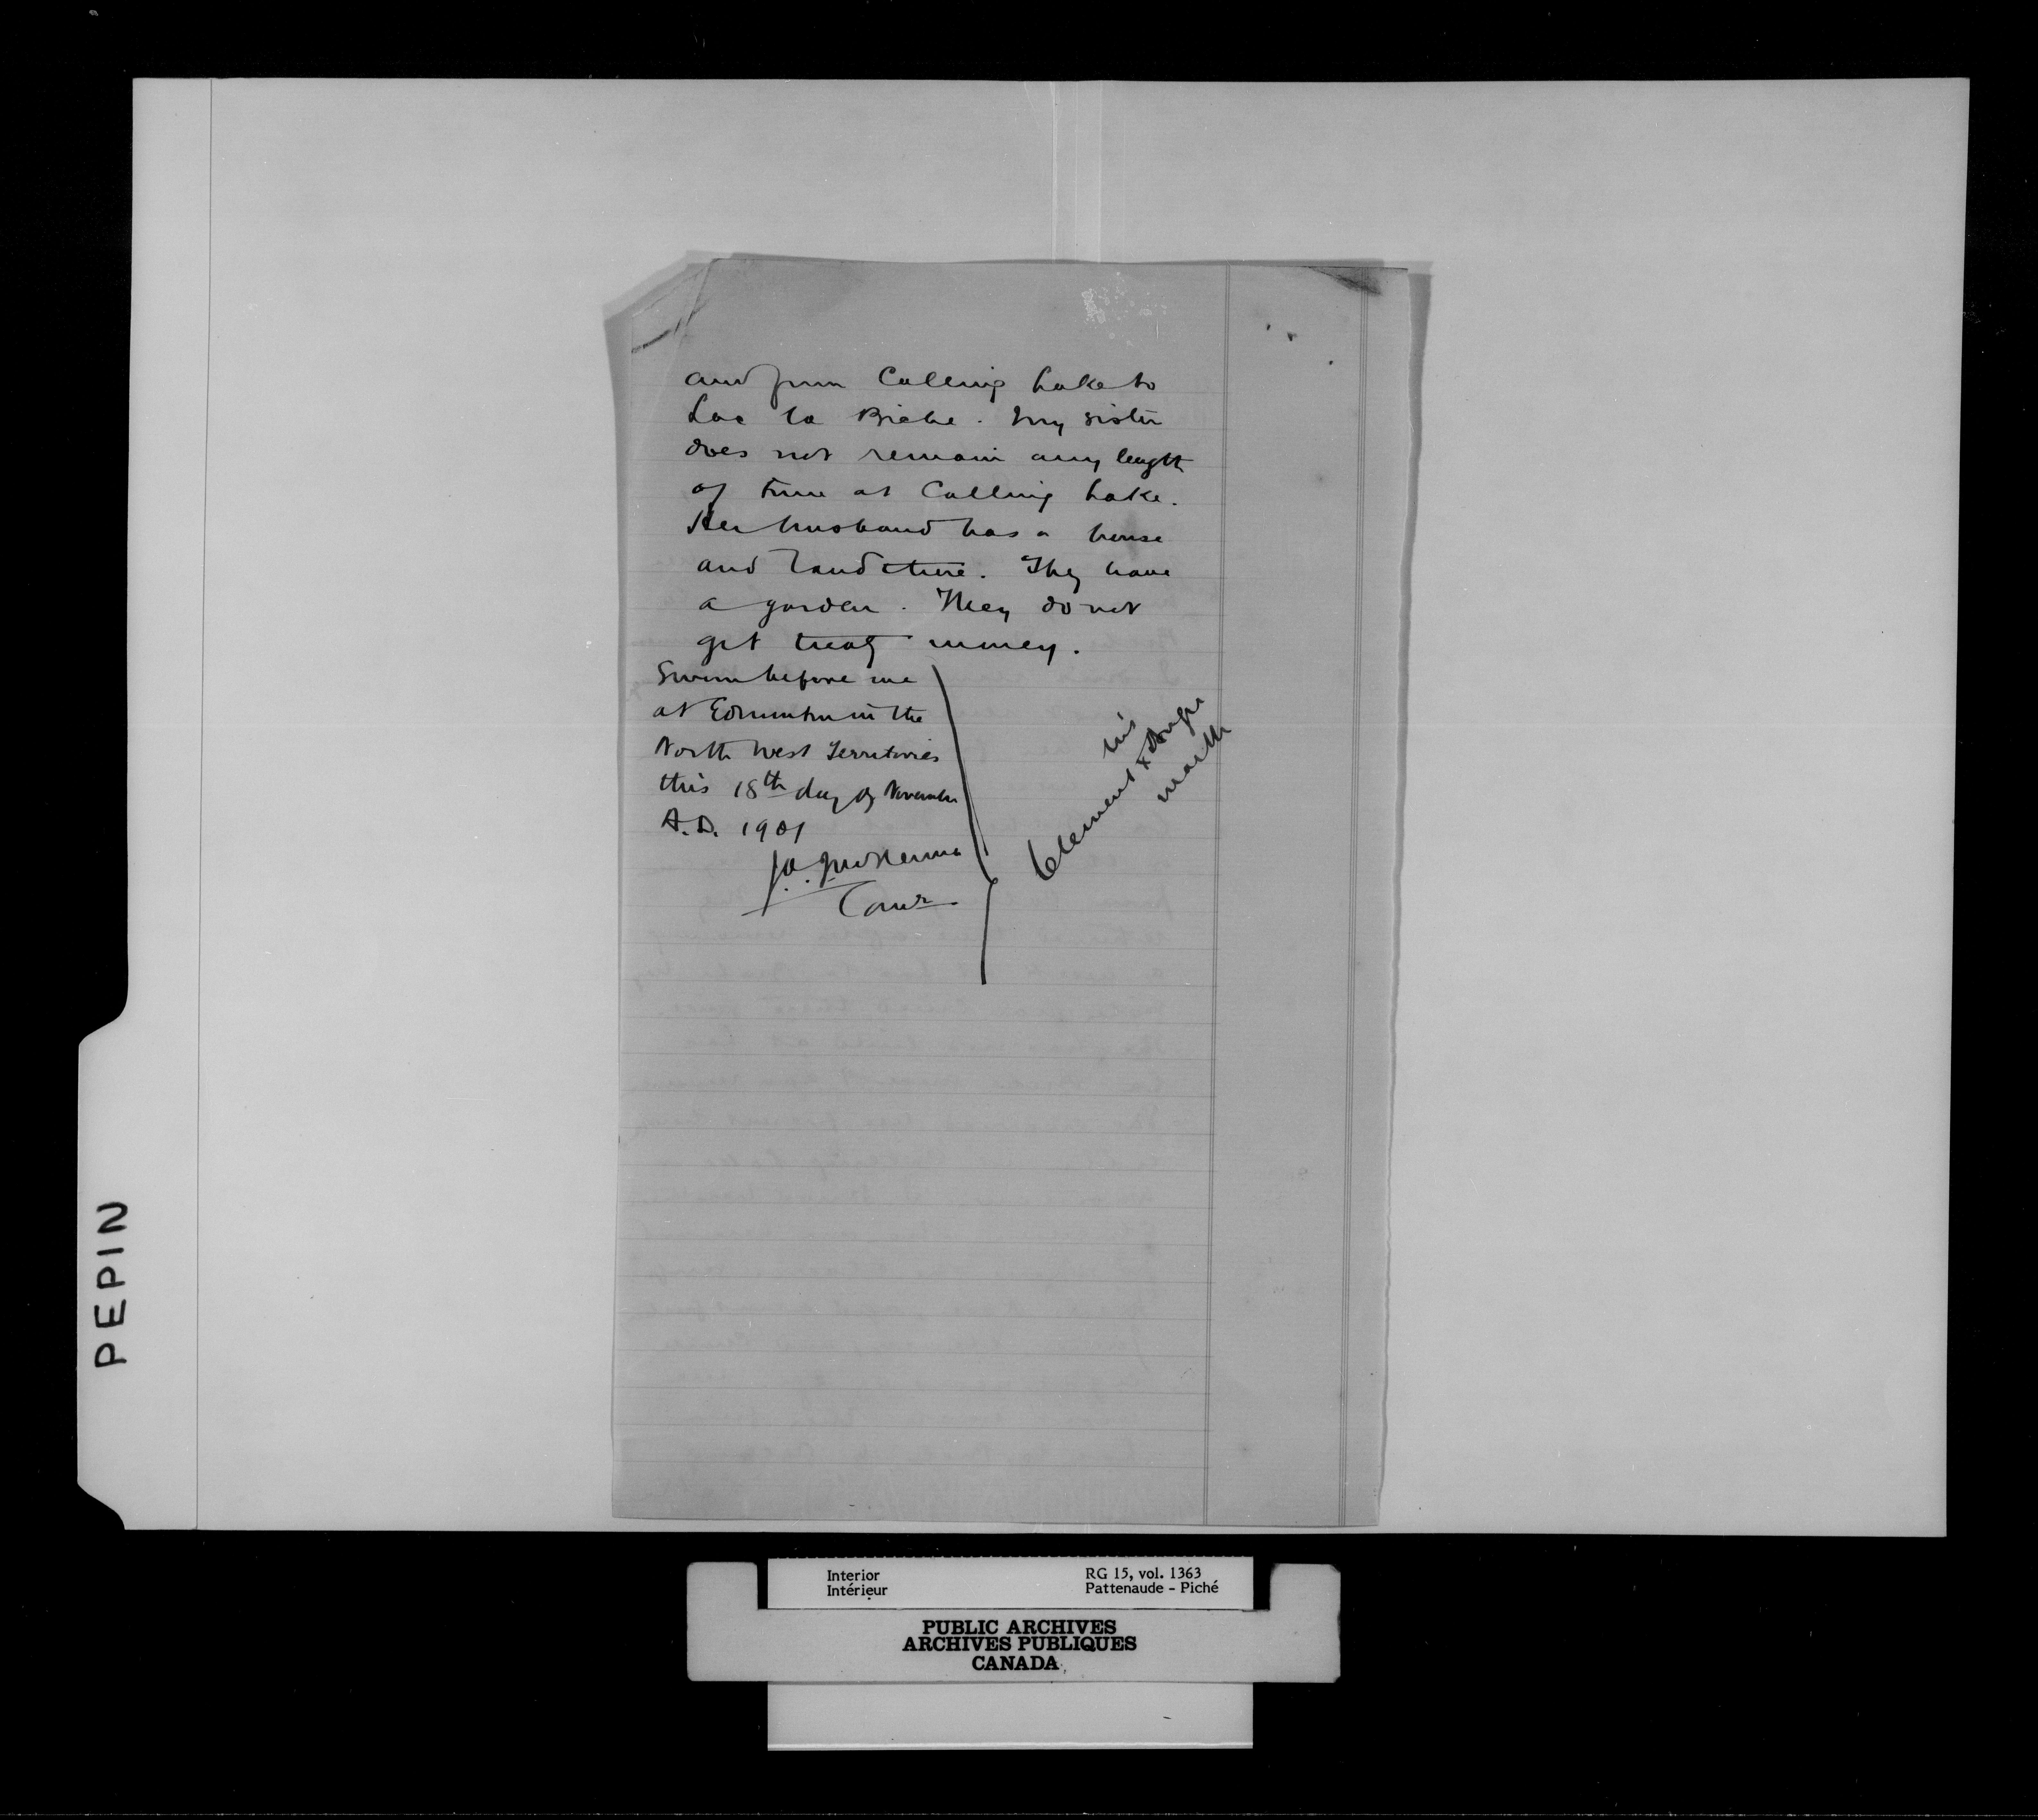 and from Calling Lake to
Lac la Biche. My sister
does not remain any length
of time at Calling Lake.
Her husband has a house
and land there. They have
a garden. They do not
get treaty money.
Sworn before me
at Edmonton in the
North West Territories
this 18th day of November
A.D. 1901
J.A. McKenna
Comr
his
Clement x
mark
PEPIN
Interior
Intérieur
RG 15, vol. 1363
Pattenaude - Piché
PUBLIC ARCHIVES
ARCHIVES PUBLIQUES
CANADA